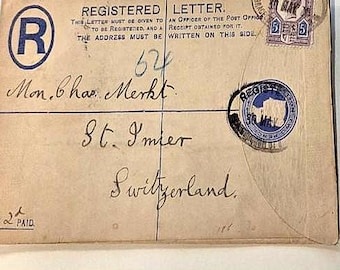 REGISTERED LETTER.
THIS LETTER MUST BE GIVEN TO AN OFFICER OF THE POST OFFICE
TO BE REGISTERED, AND A RECEIPT OBTAINED FOR IT.
THE ADDRESS MUST BE WRITTEN ON THIS SIDE.
R
62
Mon. Chas. Merkt
St. Imier
Switzerland.
2d
PAID.